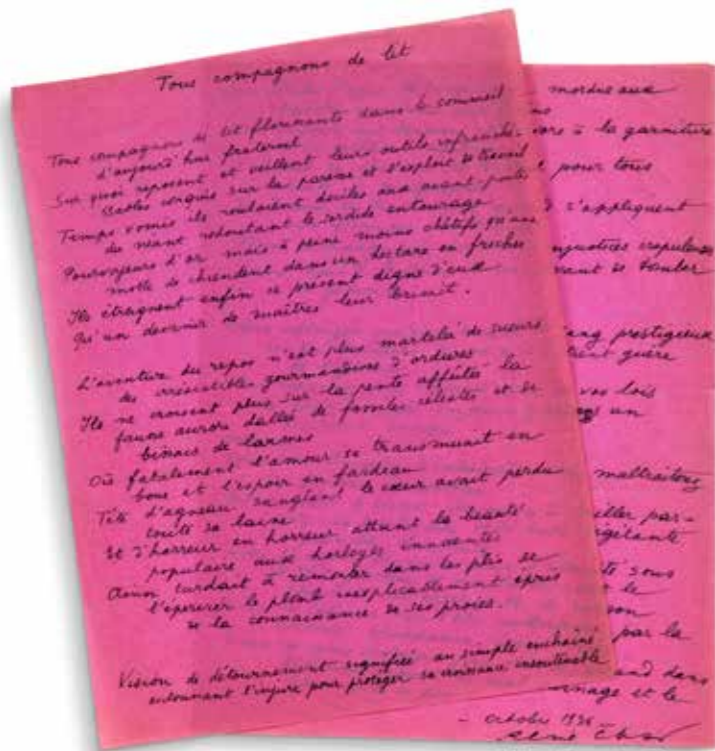 Tous compagnons de lit
Tous compagnons de lit florissants dans le sommeil
d'aujourd'hui fraternel
Sur quoi reposent et veillent leurs outils
sur la paresse et l'exploit de travail
Temps vomis ils roulaient dociles aux avant-postes
du néant redoutant le sordide entourage
Pourvoyeurs d'or mais à peine moins chétifs qu'une
motte de chiendent dans un hectare en friches
Ils étreignent enfin ce présent digne d'eux
Qu'un devenir de maîtres leur
L'aventure du repos n'est plus martelée de sueurs
des irrésistibles gourmandises d'ordures
Ils ne croisent plus sur la pente affûtée la
fausse aurore dallée de familles célestes et de
de larmes
Où fatalement l'amour se transmuait en
boue et l'espoir en fardeau
Tête d'agneau sanglant le cœur avait perdu
toute sa laine
Et d'horreur en horreur la beauté
populaire aux horloges innocentes
Ainsi tardait à remonter dans les plis de
l'épervier le plomb inexplicablement épris
de la connaissance de ses proies.
Vision de détournement signifié au simple enchaîné
entourant l'injure pour protéger sa croissance insoutenable
mordue aux
à la garniture
pour tous
s'appliquent
injustices crapuleuses
de tomber
sang prestigieux
guère
vos lois
un
maltraitons
par-
vigilante
sous
le
par la
dans
et le
- octobre 1936 -
René Char